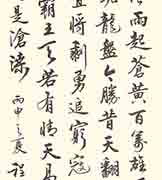 雨起蒼黃百萬雄
踞龍盤今勝昔天翻
宜將剩勇追窮寇
霸王天若有情天亦
是滄桑 丙申之夏 程